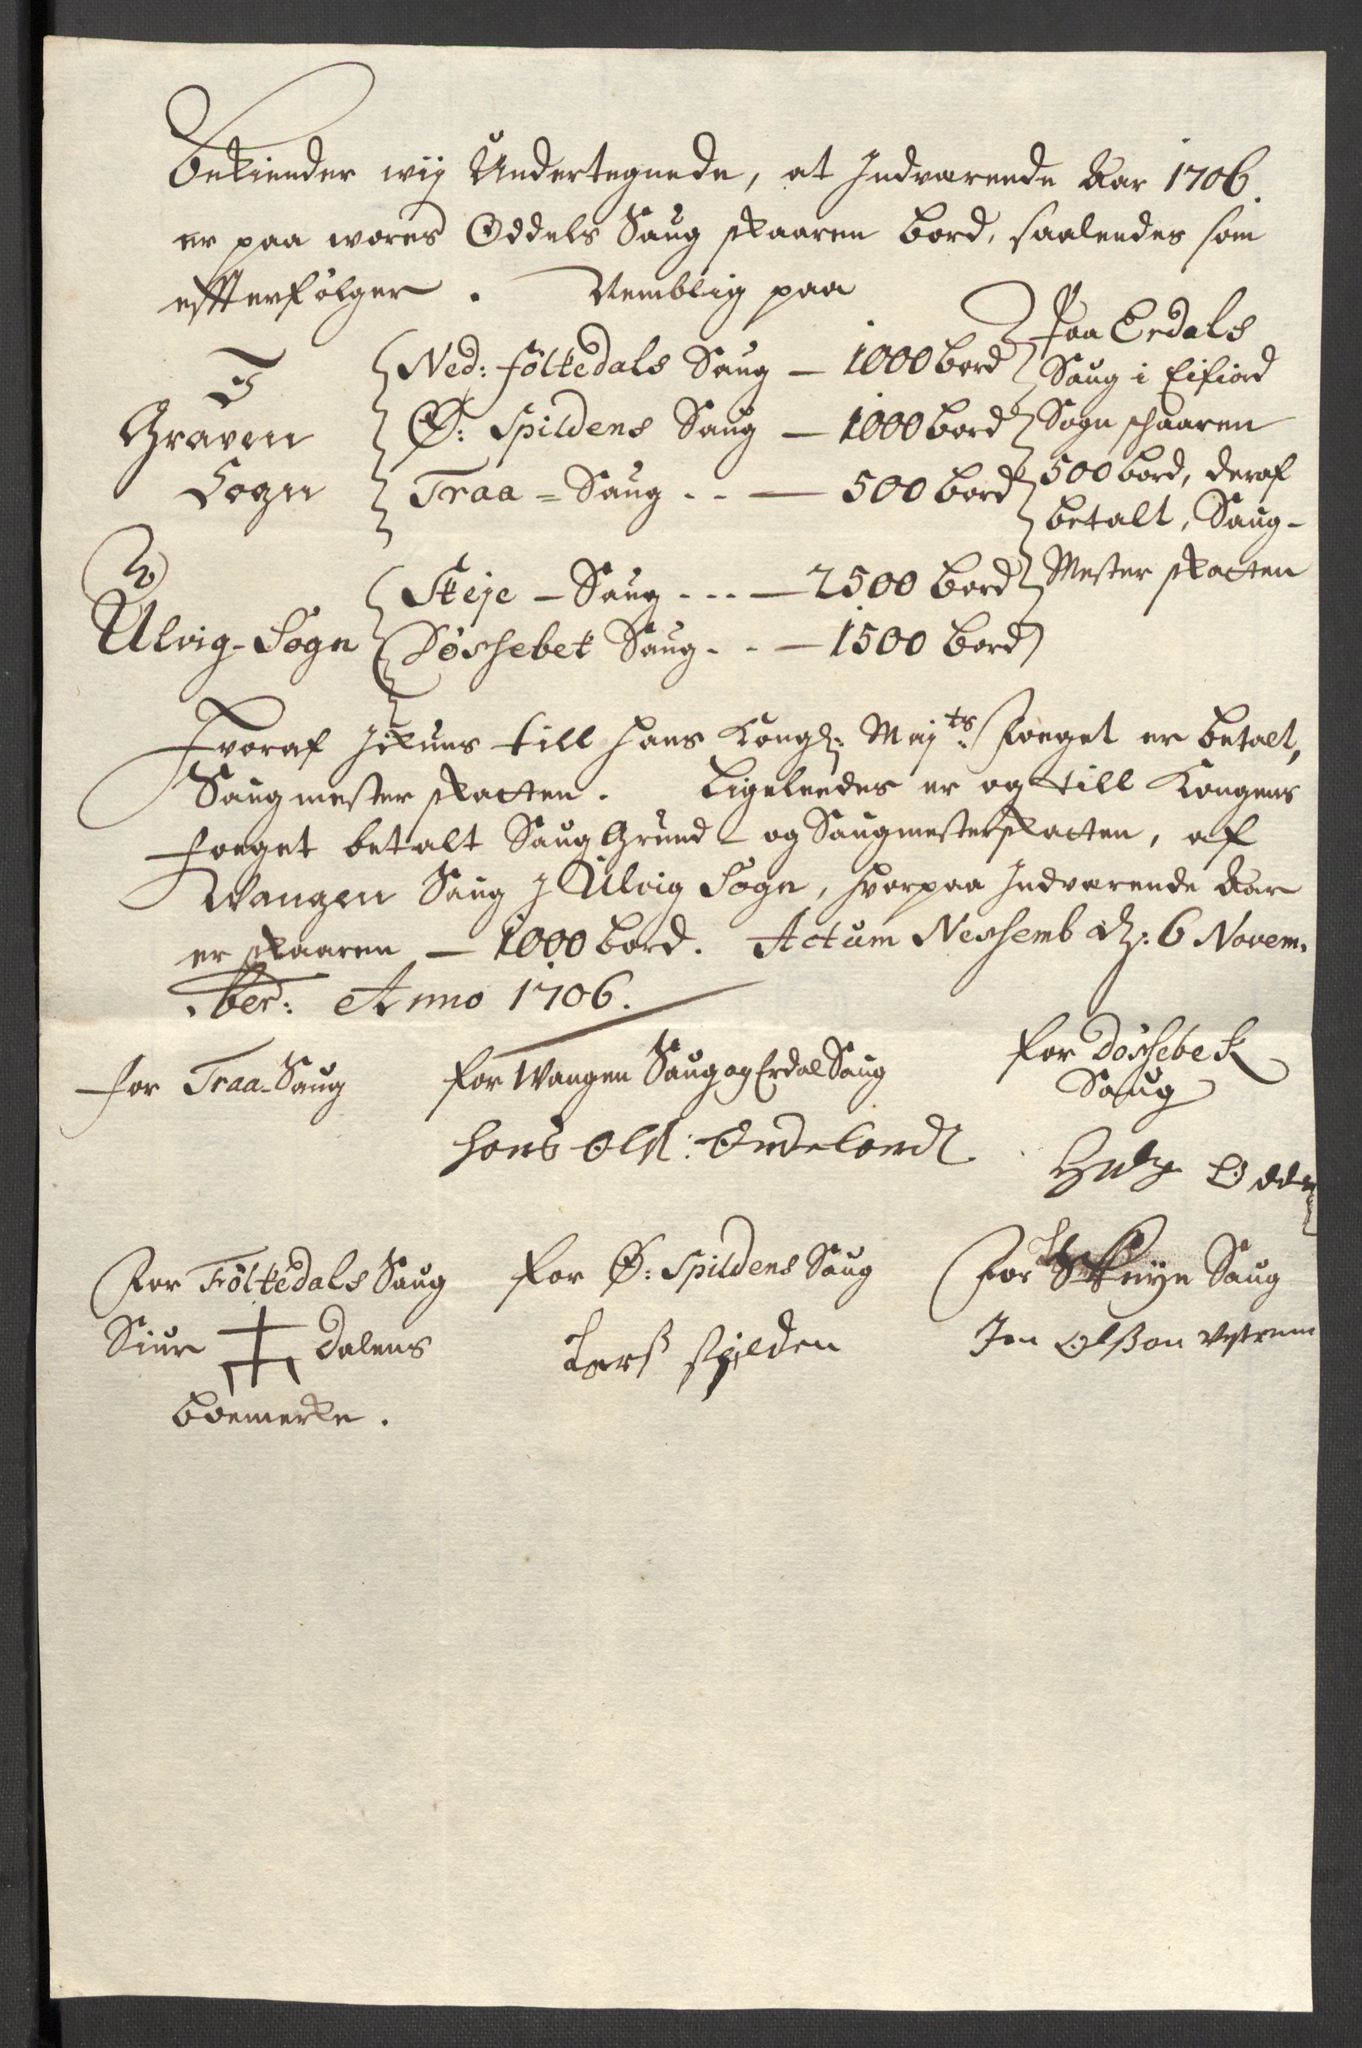 Bekiender wij Undertegnede, at Indværende Aar 1706.
er paa wores Oddels Saug skaaren bord, saaledes som
effterfølger. Nemblig paa
I Graven Sogn
Ned: Føltedals Saug — 1000 bord
Ø: Spildens Saug — 1000 bord
Traa = Saug . . — 500 bord
Paa Erdals
Saug i Eifiord
Sogn schaaren
500 bord, deraf
betalt, Saug-
Mester skatten
I Ulvig-Sogn
Skeje – Saug . . . — 2500 bord
Døssebek Saug . . — 1500 bord
Hvoraf till hans Kongl: Majts: Foeget er betalt,
Saugmester skatten. Ligeleedes er og till Kongens
Foeget betalt Saug Grund- og Saugmesterskatten, af
Wangen Saug J Ulvig Sogn, hvorpaa Indværende Aar
er skaaren — 1000 bord. Actum Nessemb d: 6 Novem-
ber: Anno 1706.
for Traa-Saug
for Wangen Saug og Erdal Saug
Hans Ols:
for Døssebek
Saug
For Føltedals Saug
Siur Dalens
boemerke.
for Ø: Spildens Saug
Lars Spilden
For Skeije Saug
Jon Olßon